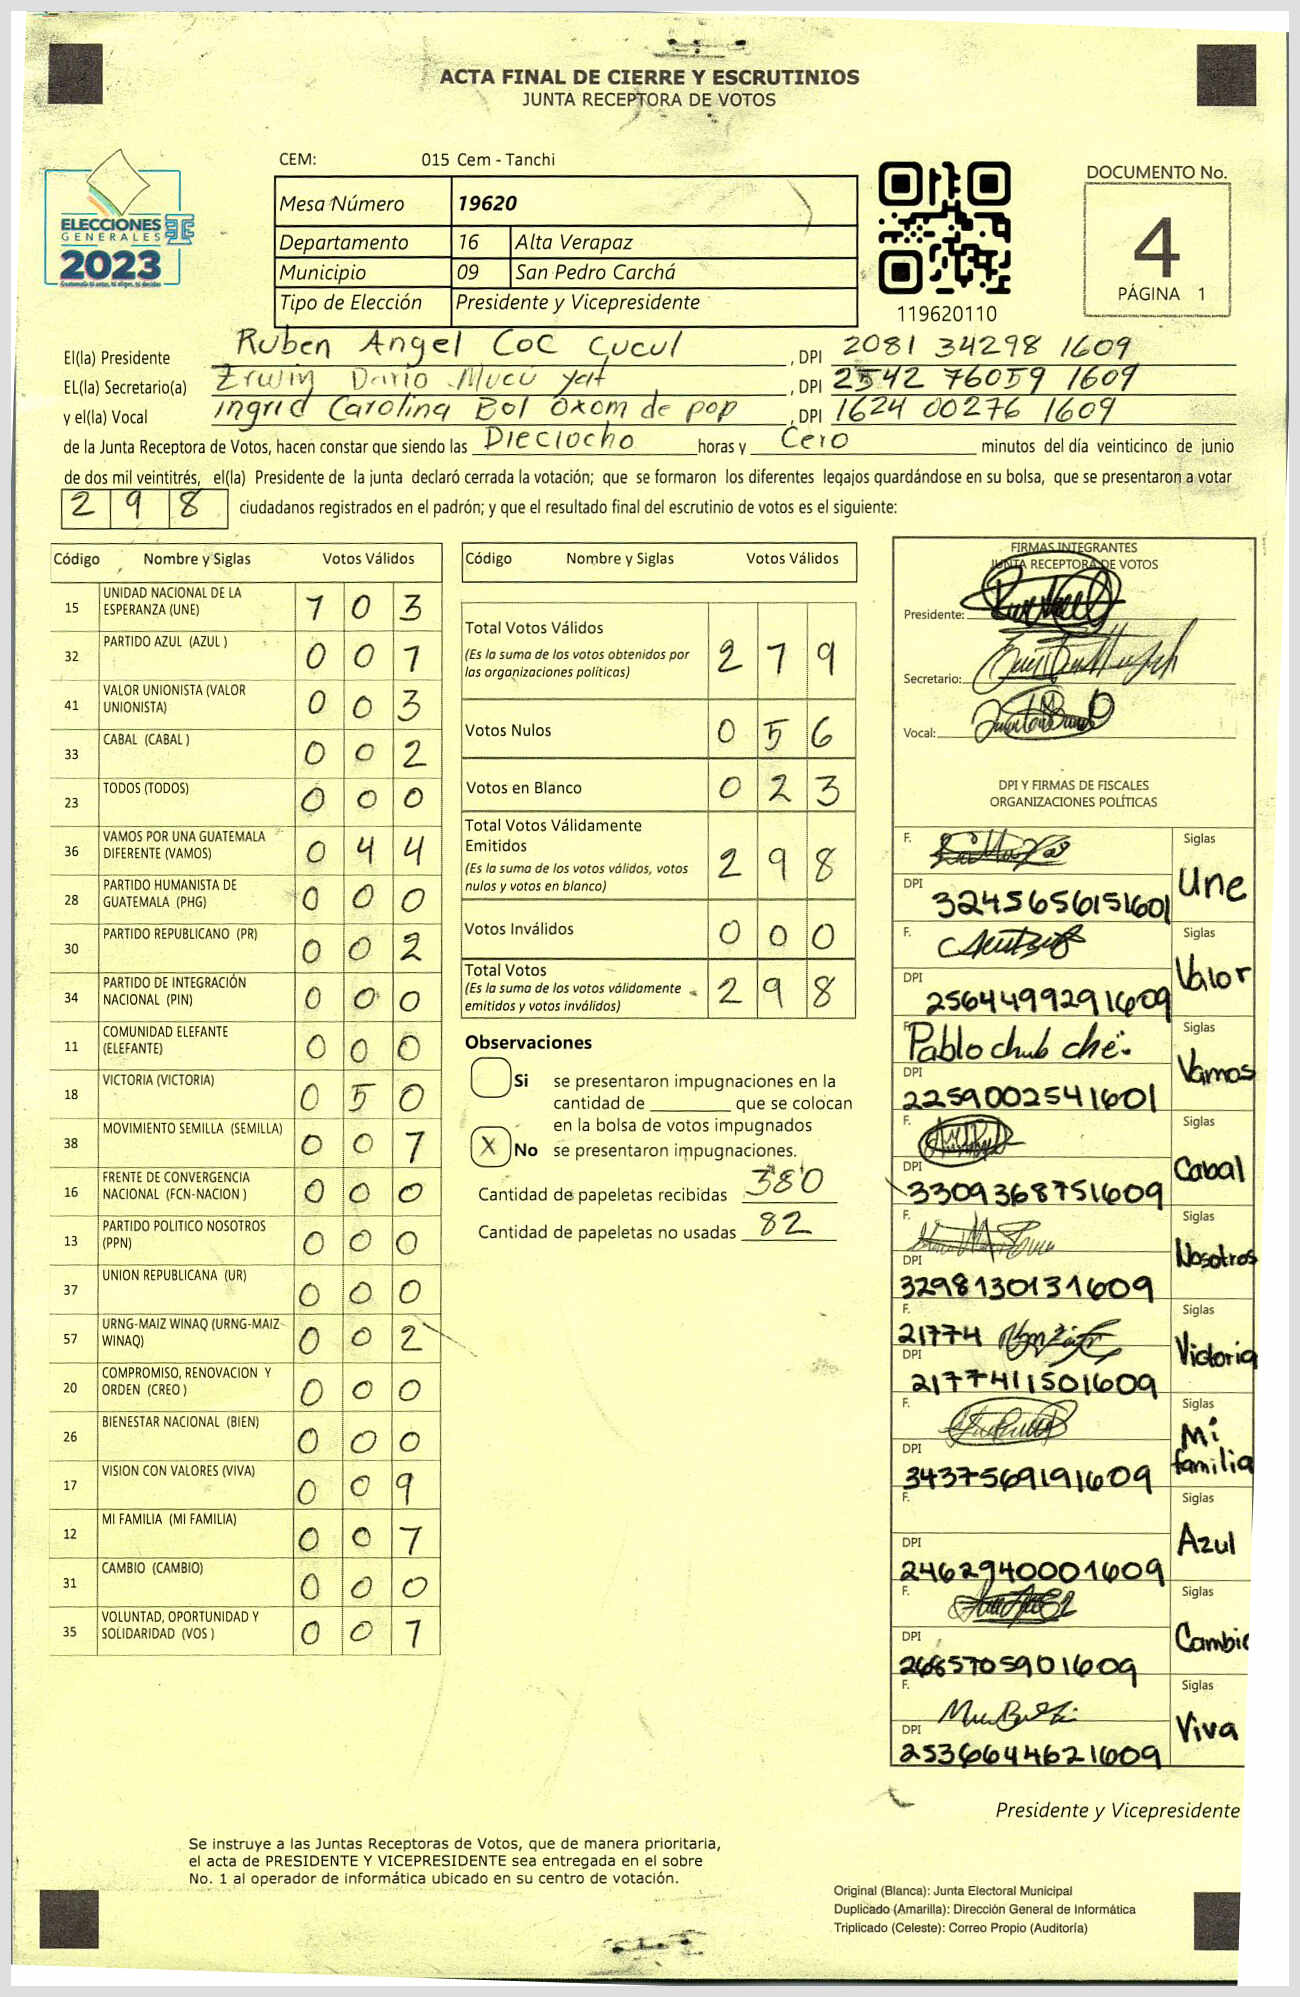 ACTA FINAL DE CIERRE Y ESCRUTINIOS
JUNTA RECEPTORA DE VOTOS
CEM: 015 Cem - Tanchi
ELECCIONES
GENERALES
2023
Mesa Número 19620
Departamento 16 Alta Verapaz
Municipio 09 San Pedro Carchá
Tipo de Elección Presidente y Vicepresidente
119620110
DOCUMENTO No.
4
PÁGINA 1
El(la) Presidente Ruben Angel Coc Cucul, DPI 2081 34298 1609
EL(la) Secretario(a) Erwin Dario Mucú yat, DPI 2542 76059 1609
y el(la) Vocal ingrid Carolina Bol Oxom de pop, DPI 1624 00276 1609
de la Junta Receptora de Votos, hacen constar que siendo las Dieciocho horas y Cero minutos del día veinticinco de junio
de dos mil veintitrés, el(la) Presidente de la junta declaró cerrada la votación; que se formaron los diferentes legajos guardándose en su bolsa, que se presentaron a votar
298 ciudadanos registrados en el padrón; y que el resultado final del escrutinio de votos es el siguiente:
Código Nombre y Siglas Votos Válidos
15 UNIDAD NACIONAL DE LA ESPERANZA (UNE) 1 0 3
32 PARTIDO AZUL (AZUL ) 0 0 1
41 VALOR UNIONISTA (VALOR UNIONISTA) 0 0 3
33 CABAL (CABAL ) 0 0 2
23 TODOS (TODOS) 0 0 0
36 VAMOS POR UNA GUATEMALA DIFERENTE (VAMOS) 0 4 4
28 PARTIDO HUMANISTA DE GUATEMALA (PHG) 0 0 0
30 PARTIDO REPUBLICANO (PR) 0 0 2
34 PARTIDO DE INTEGRACIÓN NACIONAL (PIN) 0 0 0
11 COMUNIDAD ELEFANTE (ELEFANTE) 0 0 0
18 VICTORIA (VICTORIA) 0 5 0
38 MOVIMIENTO SEMILLA (SEMILLA) 0 0 7
16 FRENTE DE CONVERGENCIA NACIONAL (FCN-NACION ) 0 0 0
13 PARTIDO POLITICO NOSOTROS (PPN) 0 0 0
37 UNION REPUBLICANA (UR) 0 0 0
57 URNG-MAIZ WINAQ (URNG-MAIZ WINAQ) 0 0 2
20 COMPROMISO, RENOVACION Y ORDEN (CREO ) 0 0 0
26 BIENESTAR NACIONAL (BIEN) 0 0 0
17 VISION CON VALORES (VIVA) 0 0 9
12 MI FAMILIA (MI FAMILIA) 0 0 7
31 CAMBIO (CAMBIO) 0 0 0
35 VOLUNTAD, OPORTUNIDAD Y SOLIDARIDAD (VOS ) 0 0 1
Código Nombre y Siglas Votos Válidos
Total Votos Válidos 2 7 9
(Es la suma de los votos obtenidos por
las organizaciones politicas)
Votos Nulos 0 5 6
Votos en Blanco 0 2 3
Total Votos Válidamente
Emitidos 2 9 8
(Es la suma de los votos válidos, votos
nulos y votos en blanco)
Votos Inválidos 0 0 0
Total Votos 2 9 8
(Es la suma de los votos válidamente
emitidos y votos inválidos)
Observaciones
Si se presentaron impugnaciones en la
cantidad de ________ que se colocan
en la bolsa de votos impugnados
X No se presentaron impugnaciones.
Cantidad de papeletas recibidas 380
Cantidad de papeletas no usadas 82
FIRMAS INTEGRANTES
JUNTA RECEPTORA DE VOTOS
Presidente:
Secretario:
Vocal:
DPI Y FIRMAS DE FISCALES
ORGANIZACIONES POLÍTICAS
F. Siglas Une
DPI 3245656151601
F. Siglas Valor
DPI 2564499291609
F. Pablo chub ché. Siglas Vamos
DPI 2259002541601
F. Siglas Cabal
DPI 3309368751609
F. Siglas Nosotros
DPI 3298130131609
F. 21774 Siglas Victoria
DPI 2177411501609
F. Siglas Mi familia
DPI 3437569191609
F. Siglas Azul
DPI 2462940001609
F. Siglas Cambio
DPI 2685705901609
F. Siglas Viva
DPI 2536644621609
Presidente y Vicepresidente
Se instruye a las Juntas Receptoras de Votos, que de manera prioritaria,
el acta de PRESIDENTE Y VICEPRESIDENTE sea entregada en el sobre
No. 1 al operador de informática ubicado en su centro de votación.
Original (Blanca): Junta Electoral Municipal
Duplicado (Amarilla): Dirección General de Informática
Triplicado (Celeste): Correo Propio (Auditoría)